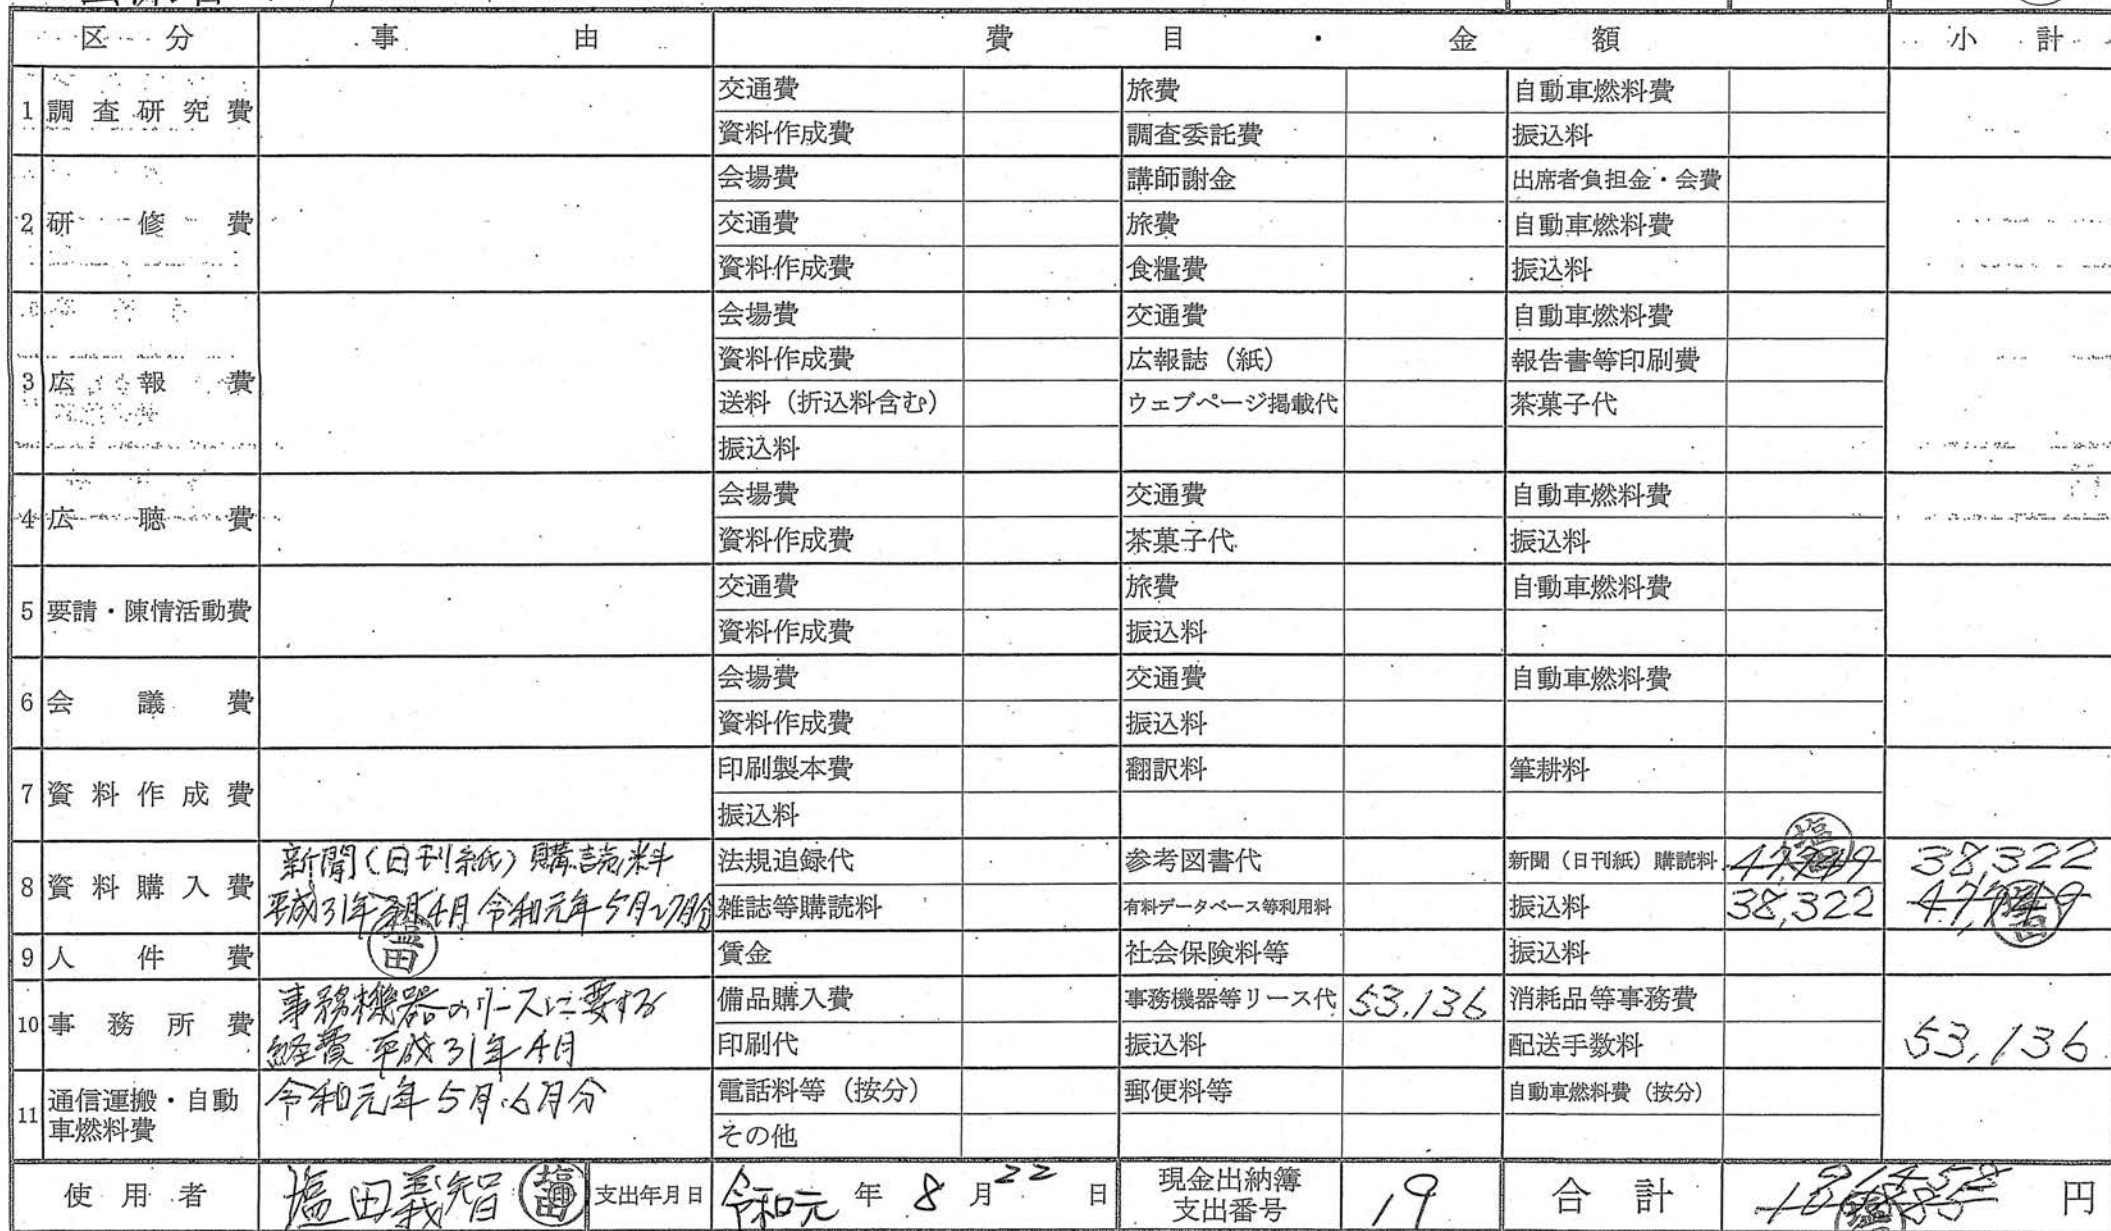 区分 事由 費目・金額 小計
1 調査研究費 交通費 旅費 自動車燃料費
資料作成費 調査委託費 振込料
2 研修費 会場費 講師謝金 出席者負担金・会費
交通費 旅費 自動車燃料費
資料作成費 食糧費 振込料
3 広報費 会場費 交通費 自動車燃料費
資料作成費 広報誌（紙） 報告書等印刷費
送料（折込料含む） ウェブページ掲載代 茶菓子代
振込料
4 広聴費 会場費 交通費 自動車燃料費
資料作成費 茶菓子代 振込料
5 要請・陳情活動費 交通費 旅費 自動車燃料費
資料作成費 振込料
6 会議費 会場費 交通費 自動車燃料費
資料作成費 振込料
7 資料作成費 印刷製本費 翻訳料 筆耕料
振込料
8 資料購入費 新聞（日刊紙）購読料 法規追録代 参考図書代 新聞（日刊紙）購読料 38,322
平成31年 4月 令和元年5月 7月分 雑誌等購読料 有料データベース等利用料 振込料 38,322
塩田
9 人件費 賃金 社会保険料等 振込料
10 事務所費 事務機器のリースに要する 備品購入費 事務機器等リース代 53,136 消耗品等事務費
経費 平成31年4月 印刷代 振込料 配送手数料 53,136
11 通信運搬・自動車燃料費 令和元年5月.6月分 電話料等（按分） 郵便料等 自動車燃料費（按分）
その他
使用者 塩田義智 塩田 支出年月日 令和元年8月22日 現金出納簿支出番号 19 合計 円